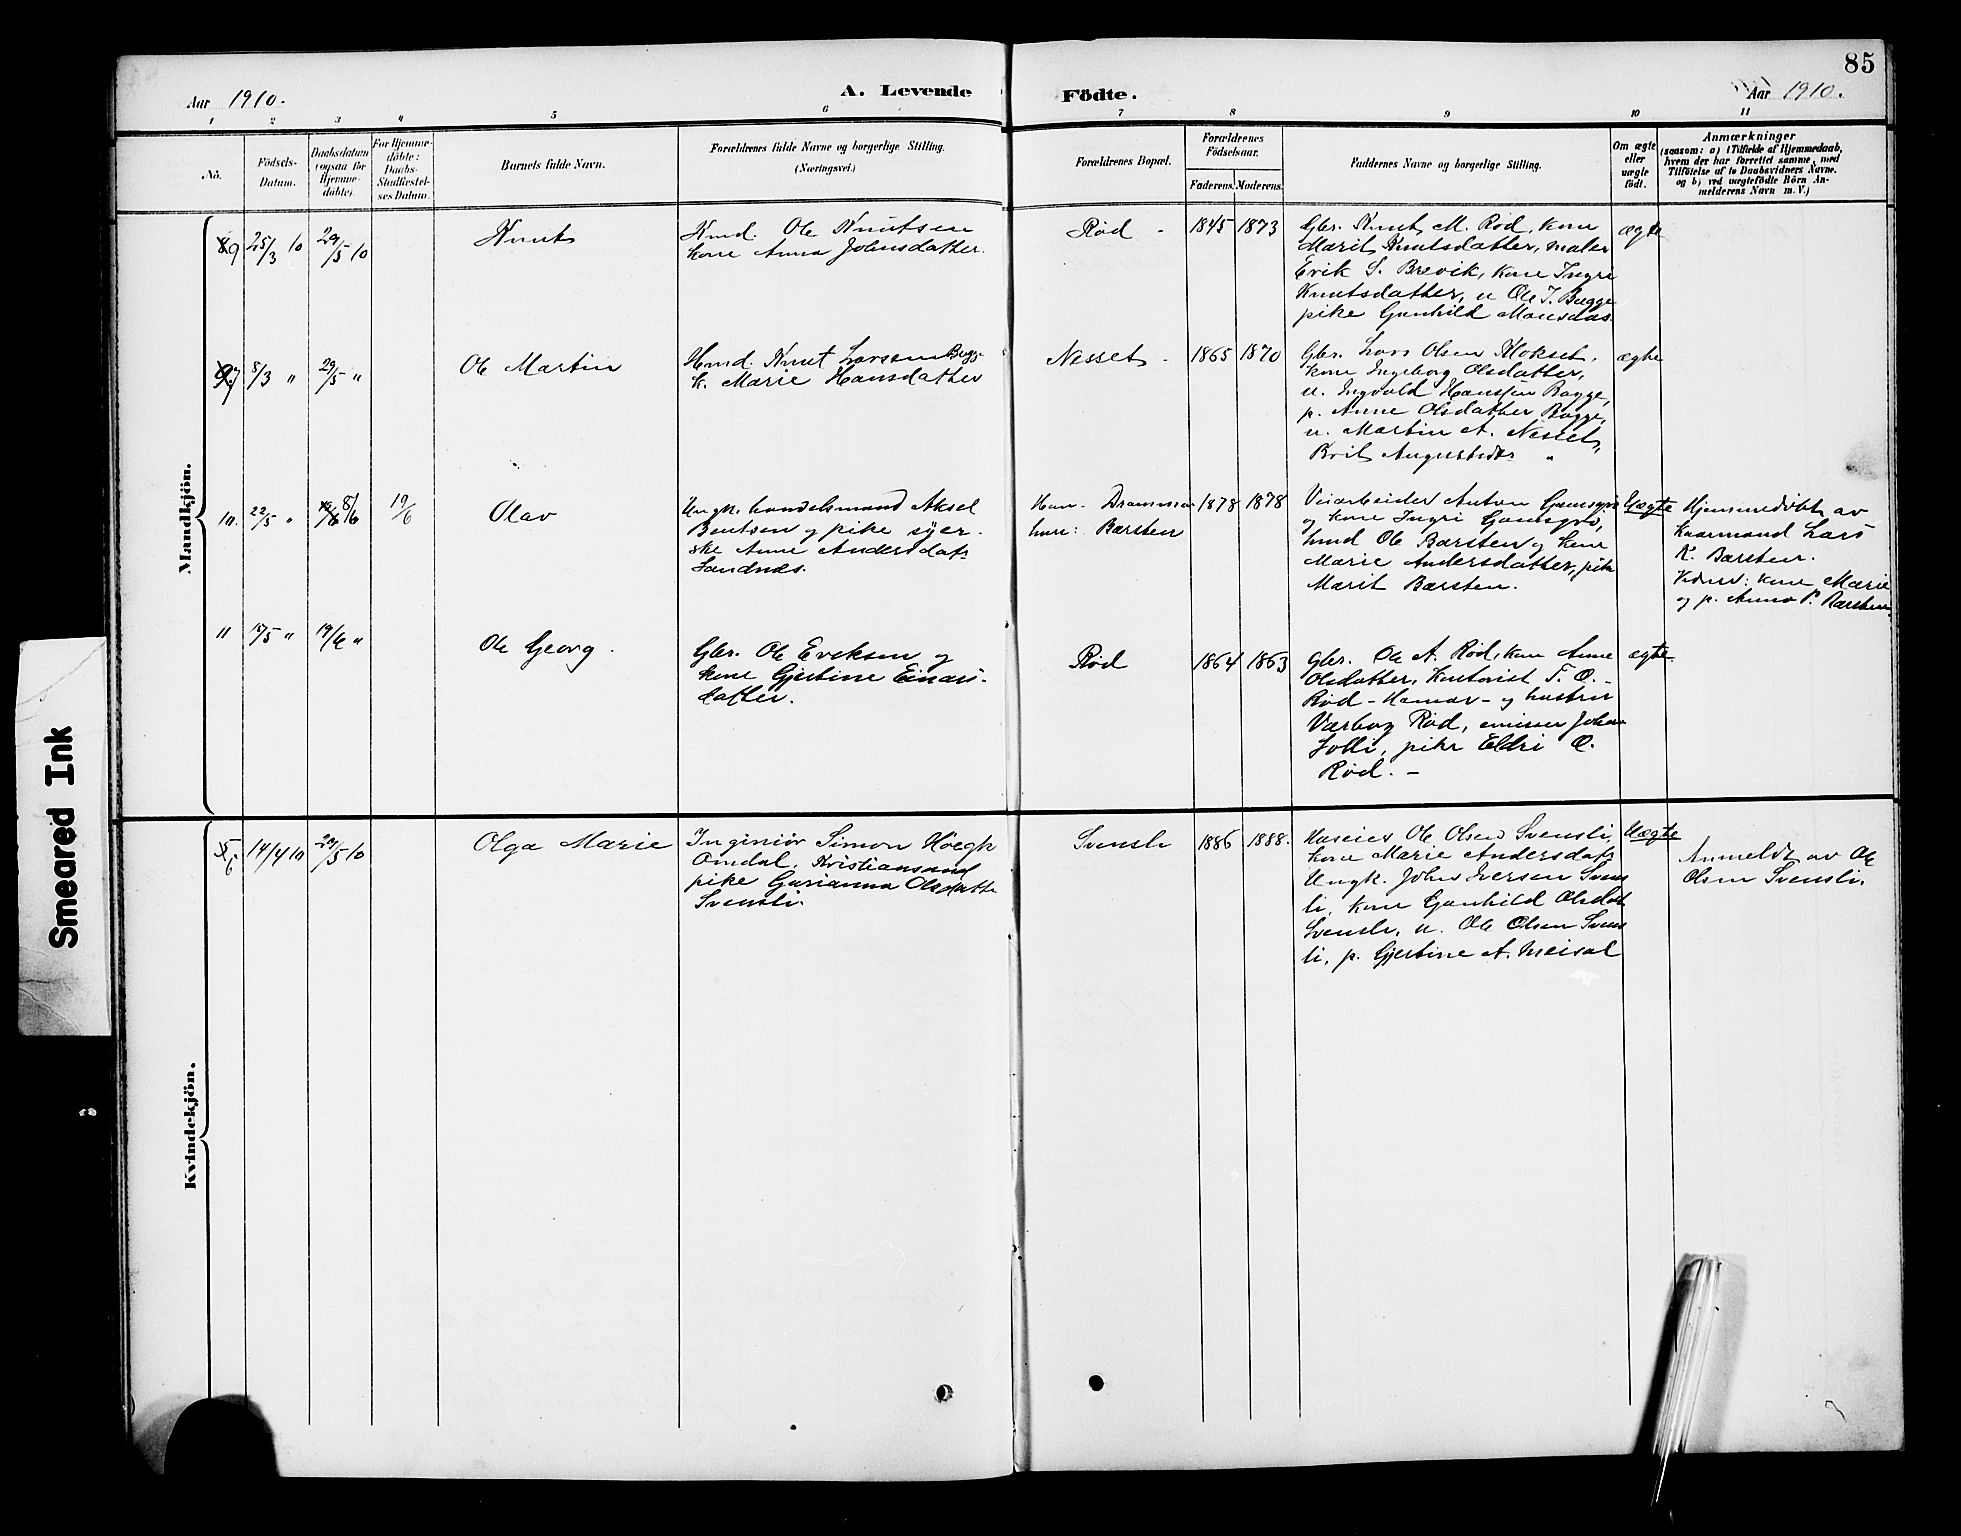 85
Aar 1910.
A. Levende
Födte.
Aar 1910.
1 2 3 4 5 6 7 8 9 10 11
No.
Födsels-
Datum.
Daabsdatum
(ogsaa for
Hjemme-
döbte).
For Hjemme-
döbte:
Daabs-
Stadfæstel-
ses Datum.
Barnets fulde Navn.
Forældrenes fulde Navne og borgerlige Stilling.
(Næringsvei.)
Forældrenes Bopæl.
Forældrenes
Födselsaar.
Faderens. Moderens.
Faddernes Navne og borgerlige Stilling.
Om ægte
eller
uægte
födt.
Anmærkninger
(saasom: a) i Tilfælde af Hjemmedaab,
hvem der har forrettet samme, med
Tilföielse af to Daabsvidners Navne,
og b) ved uægtefödte Börn An-
melderens Navn m. V.)
Mandkjön.
25/3 10
29/5 10
Knut
Ole Knutsen
kone Anna Johnsdatter.
Rød
1845 1873
Gbr. Knut M. Rød, kone
Marit Knutsdatter, maler
Erik S. Brevik, kone Ingri
Knutsdatter, u Ole J. Bugge
pike Gunhild Monsdas.
ægte
8/3 "
29/5 "
Ole Martin
Hmd. Knut Larsen Bugge
k. Marie Hansdatter
Nesset
1865 1870
Gbr. Lars Olsen Klokset,
kone Ingeborg Olsdatter,
u. Ingvald Hansen Bugge,
p. Anne Olsdatter Bugge,
u. Martin A. Nesset,
Brit Augustsdtr "
ægte
10.
22/5 "
8/6
19/6
Olav
Ungk. handelsmand Aksel
Bentsen og pike syer-
ske Anne Andersdat.
Sandnes.
Han: Drammen
hun: Barsten
1878 1878
Veiarbeider Anton
og kone Ingri
hmd Ole Barsten og kone
Marie Andersdatter, pike
Marit Barsten.
Uægte
Hjemmedøbt av
Kaarmand Lars
K. Barsten.
Vidner: kone Marie
og p. Anna P. Barsten
11
15/5 "
19/6 "
Ole Georg.
Gbr. Ole Eriksen og
kone Gjertine Einars-
datter.
Rød
1864 1863
Gbr. Ole A. Rød, kone Anne
Olsdatter, T. O.
Rød - Hamar - og hustru
Rød, emissær Johan
pike Eldri O.
Rød. -
ægte
Kvindekjön.
6
14/4 10
29/5 10
Olga Marie
Ingeniör Simon Höegh
Omdal, Kristiansund
pike Gurianna Olsdatte
Svensli.
Svensli
1886 1888.
Huseier Ole Olsen Svensli,
kone Marie Andersdat.
Ungk. John Iversen Svens
li, kone Gunhild Olsdat
Svensli, u. Ole Olsen Svens
li, p. Gjertine A. Meisal
Uægte
Anmeldt av Ole
Olsen Svensli.
Smeared Ink